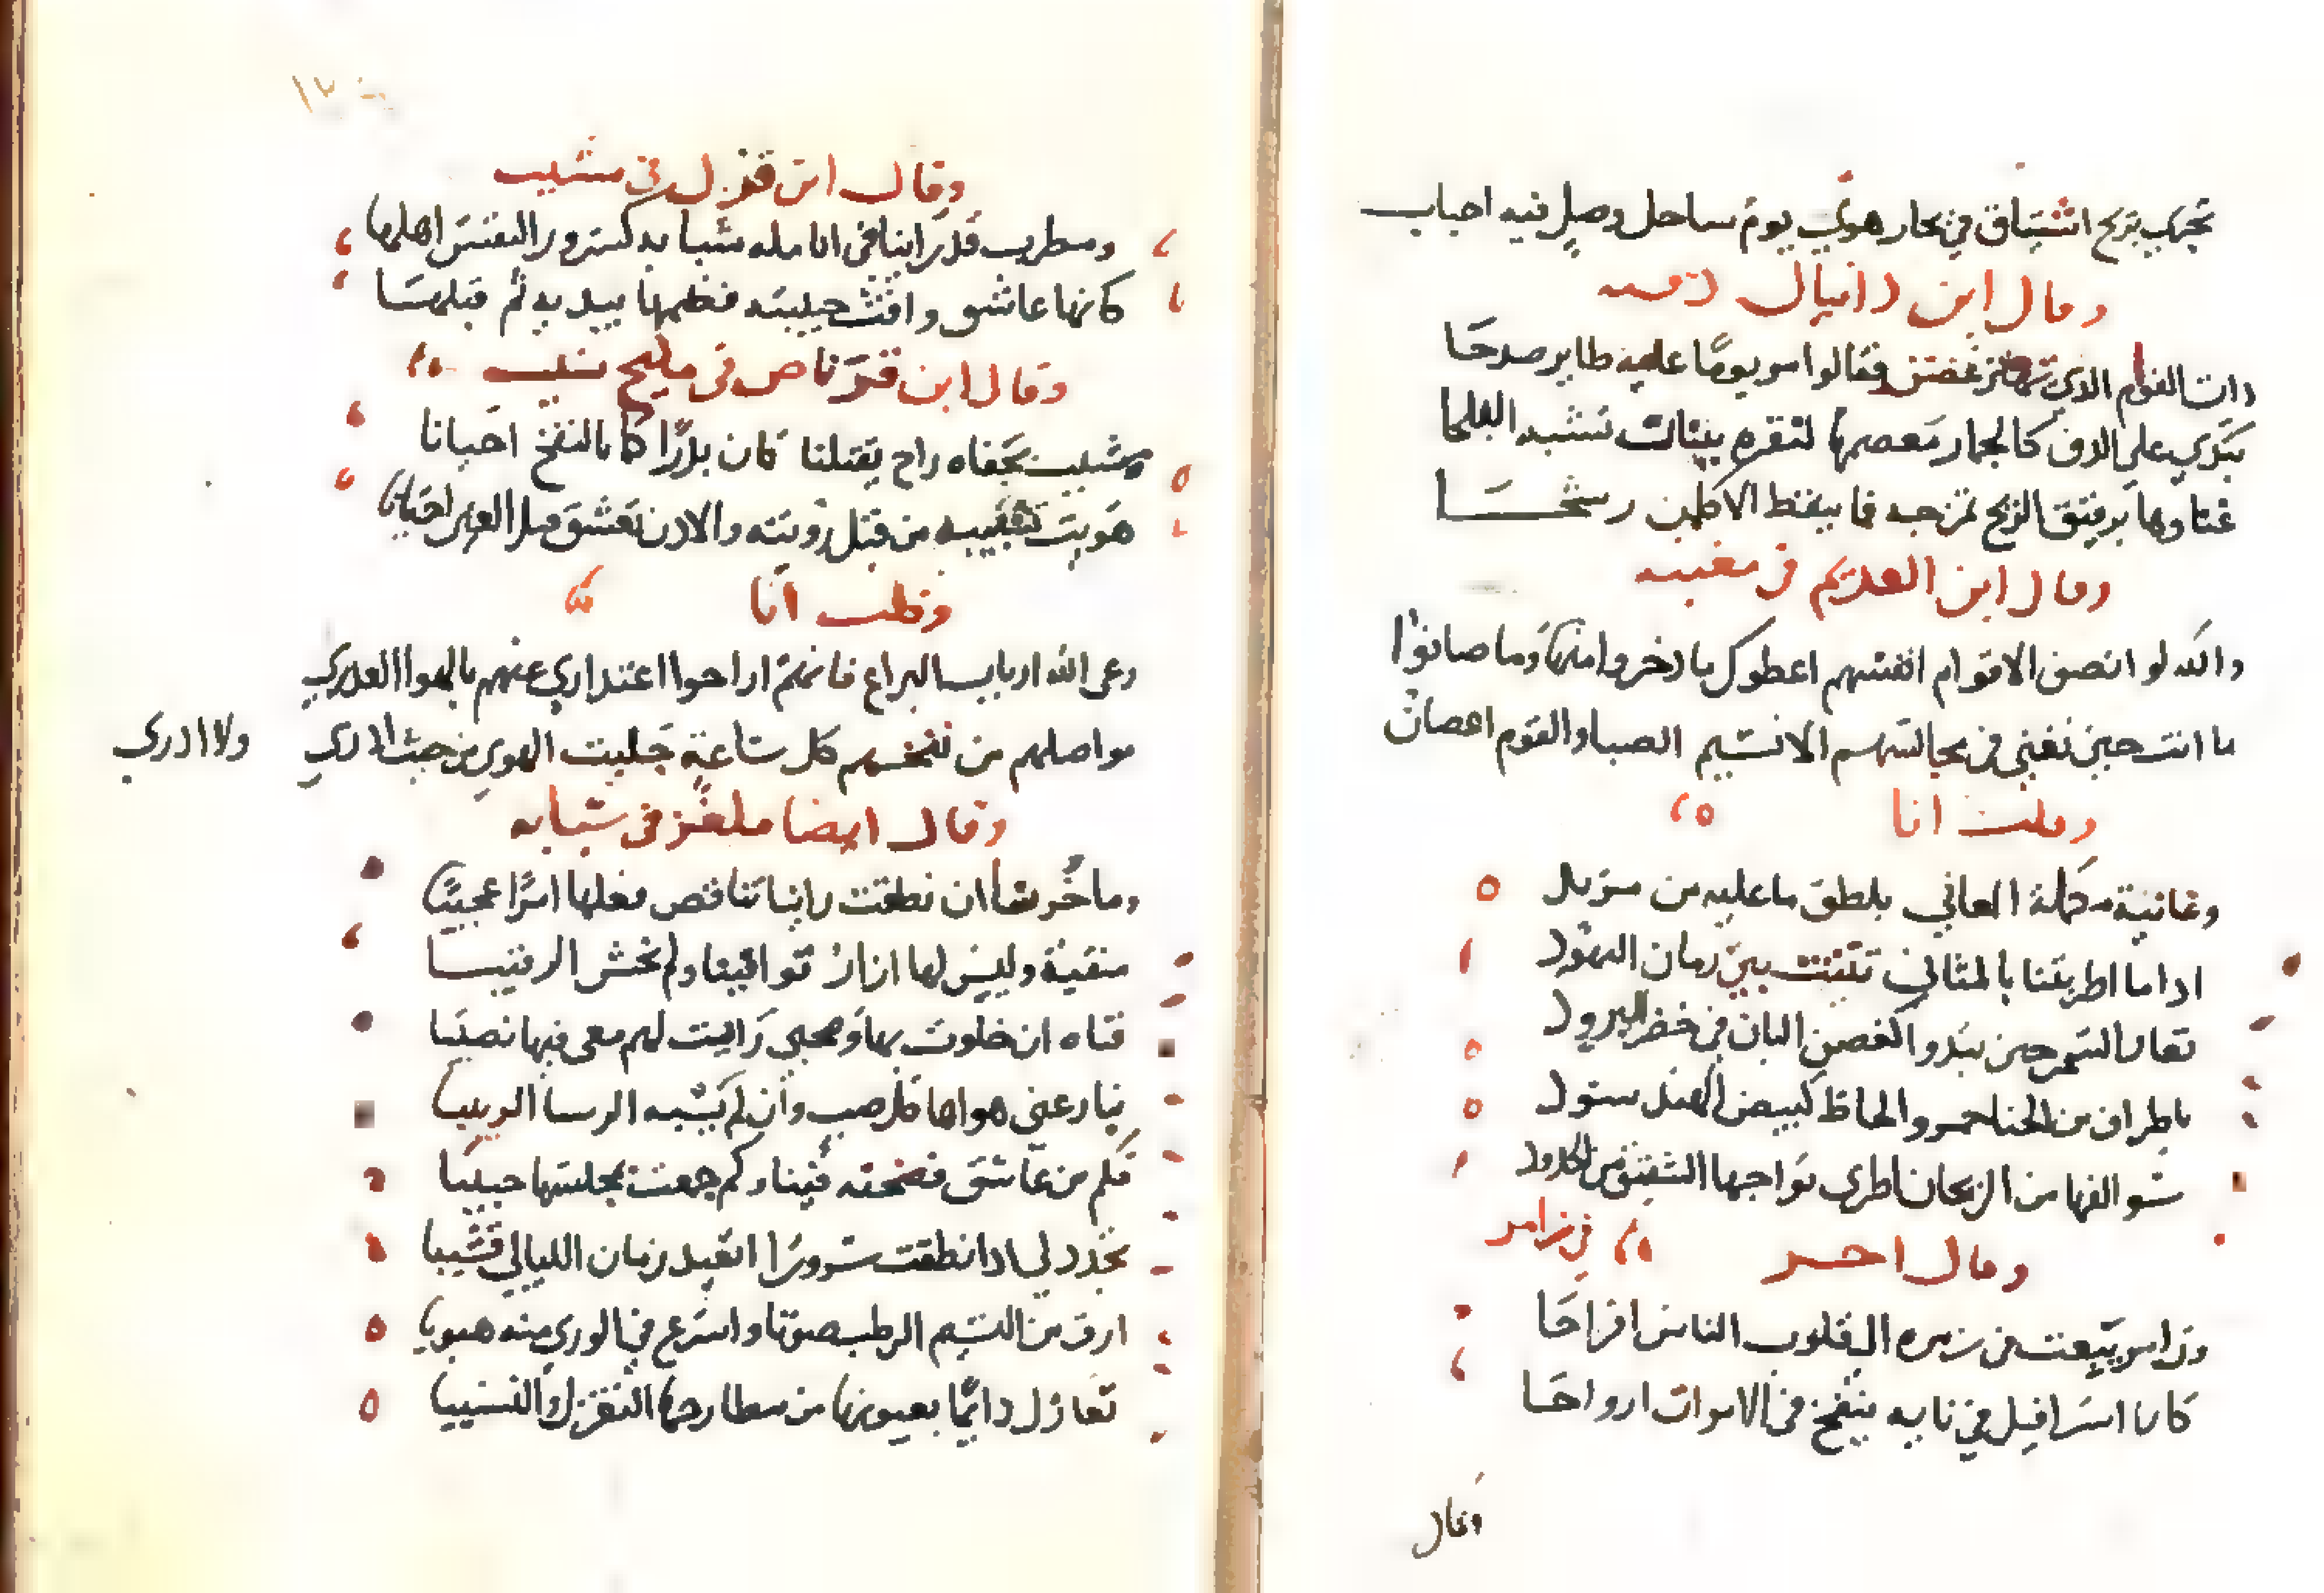 تجري بريح اشتياق في بحار هوي يوم ساحل وصل فيه احباب
وقال ابن دانيال
ذات القوام الذي تهتز غصن فقالوا مر يوما عليه طاير صدحا
تبدي على الدف كالجمار معصمها لنقره ببنان تشبه البلحا
غناوها برقيق الزنج تمزجه فما ينقط الا كل من رشحا
وقال ابن العديم في مغنيه
والله لو انصف الاقوام انفسهم اعطوك ما ادخروا منها وما صانوا
ما انت حين تغني في مجالسهم الا نسيم الصبا والقوم اغصان
وقلت انا
وغانية مكملة المعاني بلطف ما عليه من مزيد
اذا ما اطربتنا بالمثاني تثنت بين رمان النهود
تغار السمر حين تبدو كغصن البان في خضر البرود
باطراف من الحنا حمر والحاظ كبيض الهند سود
سوالفها من الريحان اطرى تواجها الشقيق من الخدود
وقال اخر في زامر
وزامر يبعث في زمره الى قلوب الناس افراحا
كان اسرافيل في نايه ينفخ في الاموات ارواحا
وقال
وقال ابن قزل في مشبب
ومطرب قد راينا في انامله شبابه كسرور النفس اهلها
كانها عاشق وافت حبيبته فضمها بيديه ثم قبلها
وقال ابن قرناص في مليح مشبب
مشبب بجفاه راح يقتلنا كان بدرا كا بالنفخ احيانا
هويت تشبيبه من قبل رويته والاذن تعشق قبل العين احيانا
وقلت انا
رعى الله ارباب اليراع فانهم اراحوا اعتذاري عنهم بالهوا العذري
مواصلهم من نفخهم كل ساعة جلبت الهوي من حيث ادري ولا ادري
وقال ايضا ملغز في شبابه
وما خرسا ان نطقت راينا تناقض فعلها امرا عجيبا
منقبة وليس لها ازار توافينا ولم تخش الرقيبا
فتاه ان خلوت بها وصحبي رايت لهم معي فيها نصيبا
ينازعني هواها كل صب وان لم يشبه الرسا الربيبا
فكم من عاشق فضحته فينا وكم جمعت بمجلسها حبيبا
تجدد لي اذا نطقت سرورا اتعيد زمان الليالي قشيبا
ارق من النسيم الرطب صوتا واسرع في الوري منه هبوبا
تغازل دايما بعيونها من مطارحها التغزل والنسيبا